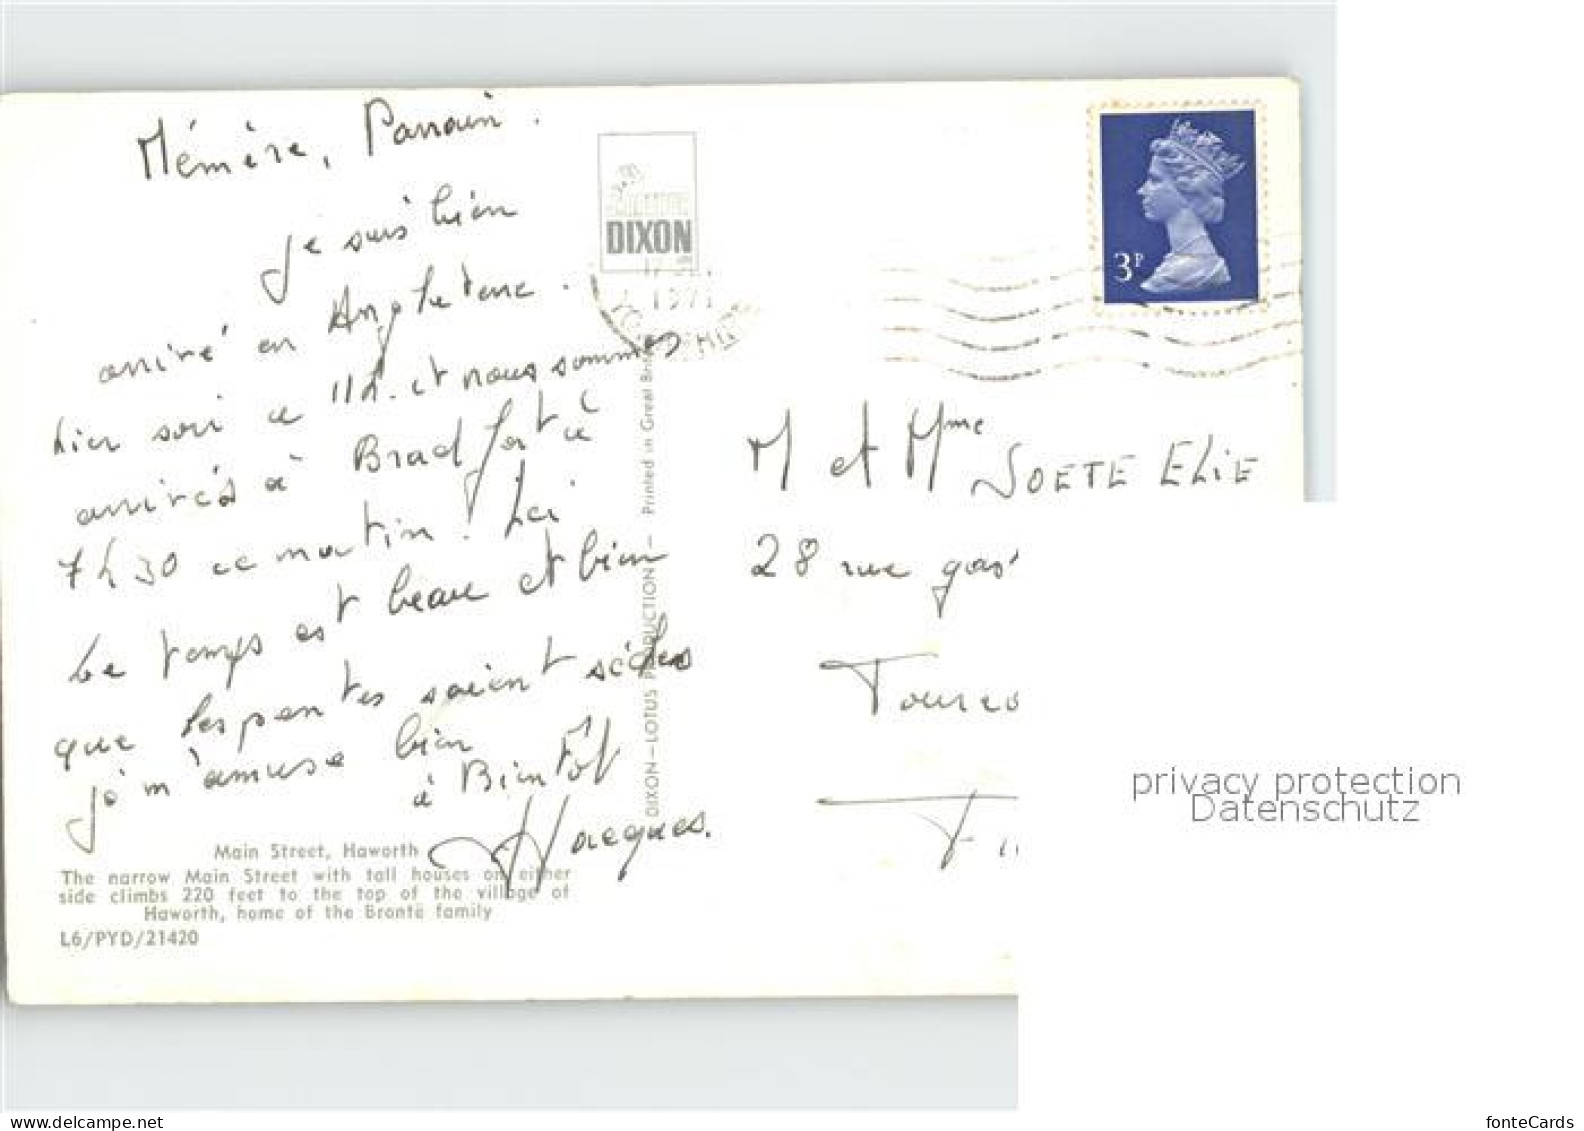 Mémère, Parrain.
je suis bien
arrivé en Angleterre.
hier soir a 11h. et nous sommes
arrivés à Bradford à
7h30 ce matin. Ici
le temps est beau et bien
que les pentes soient
j' m'amuse bien
à Bientôt
Jacques.
Main Street, Haworth
The narrow Main Street with tall houses on either
side climbs 220 feet to the top of the village of
Haworth, home of the Brontë family
L6/PYD/21420
DIXON
DIXON—LOTUS PRODUCTION— Printed in Great Brit
3P
M et Mme SOETE ELIE
28 rue gas
Tourco
privacy protection
Datenschutz
fonteCards